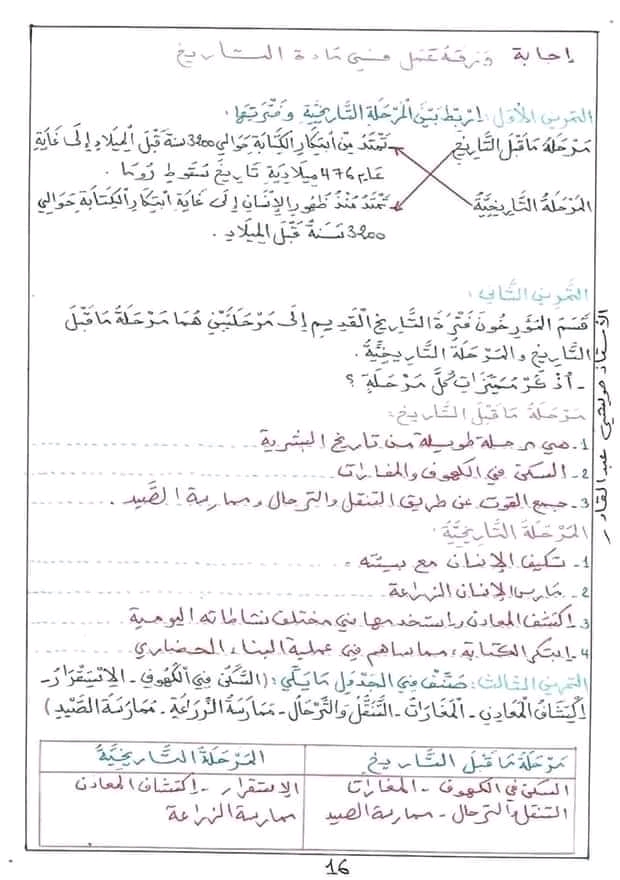 إجابة ورقة عمل في مادة التاريخ
التمرين الأول: اربط بين المرحلة التاريخية وفترتها:
مرحلة ما قبل التاريخ تمتد من ابتكار الكتابة حوالي 3200 سنة قبل الميلاد إلى غاية
عام 476 ميلادية تاريخ سقوط روما.
المرحلة التاريخية تمتد منذ ظهور الإنسان إلى غاية ابتكار الكتابة حوالي
3200 سنة قبل الميلاد.
التمرين الثاني:
قسم المؤرخون فترة التاريخ القديم إلى مرحلتين هما مرحلة ما قبل
التاريخ والمرحلة التاريخية.
- أذكر مميزات كل مرحلة؟
مرحلة ما قبل التاريخ:
1- هي مرحلة طويلة من تاريخ البشرية
2- السكن في الكهوف والمغارات
3- جمع القوت عن طريق التنقل والترحال وممارسة الصيد.
المرحلة التاريخية:
1- تكيف الإنسان مع بيئته.
2- مارس الإنسان الزراعة
3- اكتشف المعادن واستخدمها في مختلف نشاطاته اليومية
4- ابتكر الكتابة، مما ساهم في عملية البناء الحضاري
التمرين الثالث: صنف في الجدول ما يلي: (السكن في الكهوف - الاستقرار -
اكتشاف المعادن - المغارات - التنقل والترحال - ممارسة الزراعة - ممارسة الصيد)
مرحلة ما قبل التاريخ المرحلة التاريخية
السكن في الكهوف - المغارات الاستقرار - اكتشاف المعادن
التنقل والترحال - ممارسة الصيد ممارسة الزراعة
16
الأستاذ عبد القادر